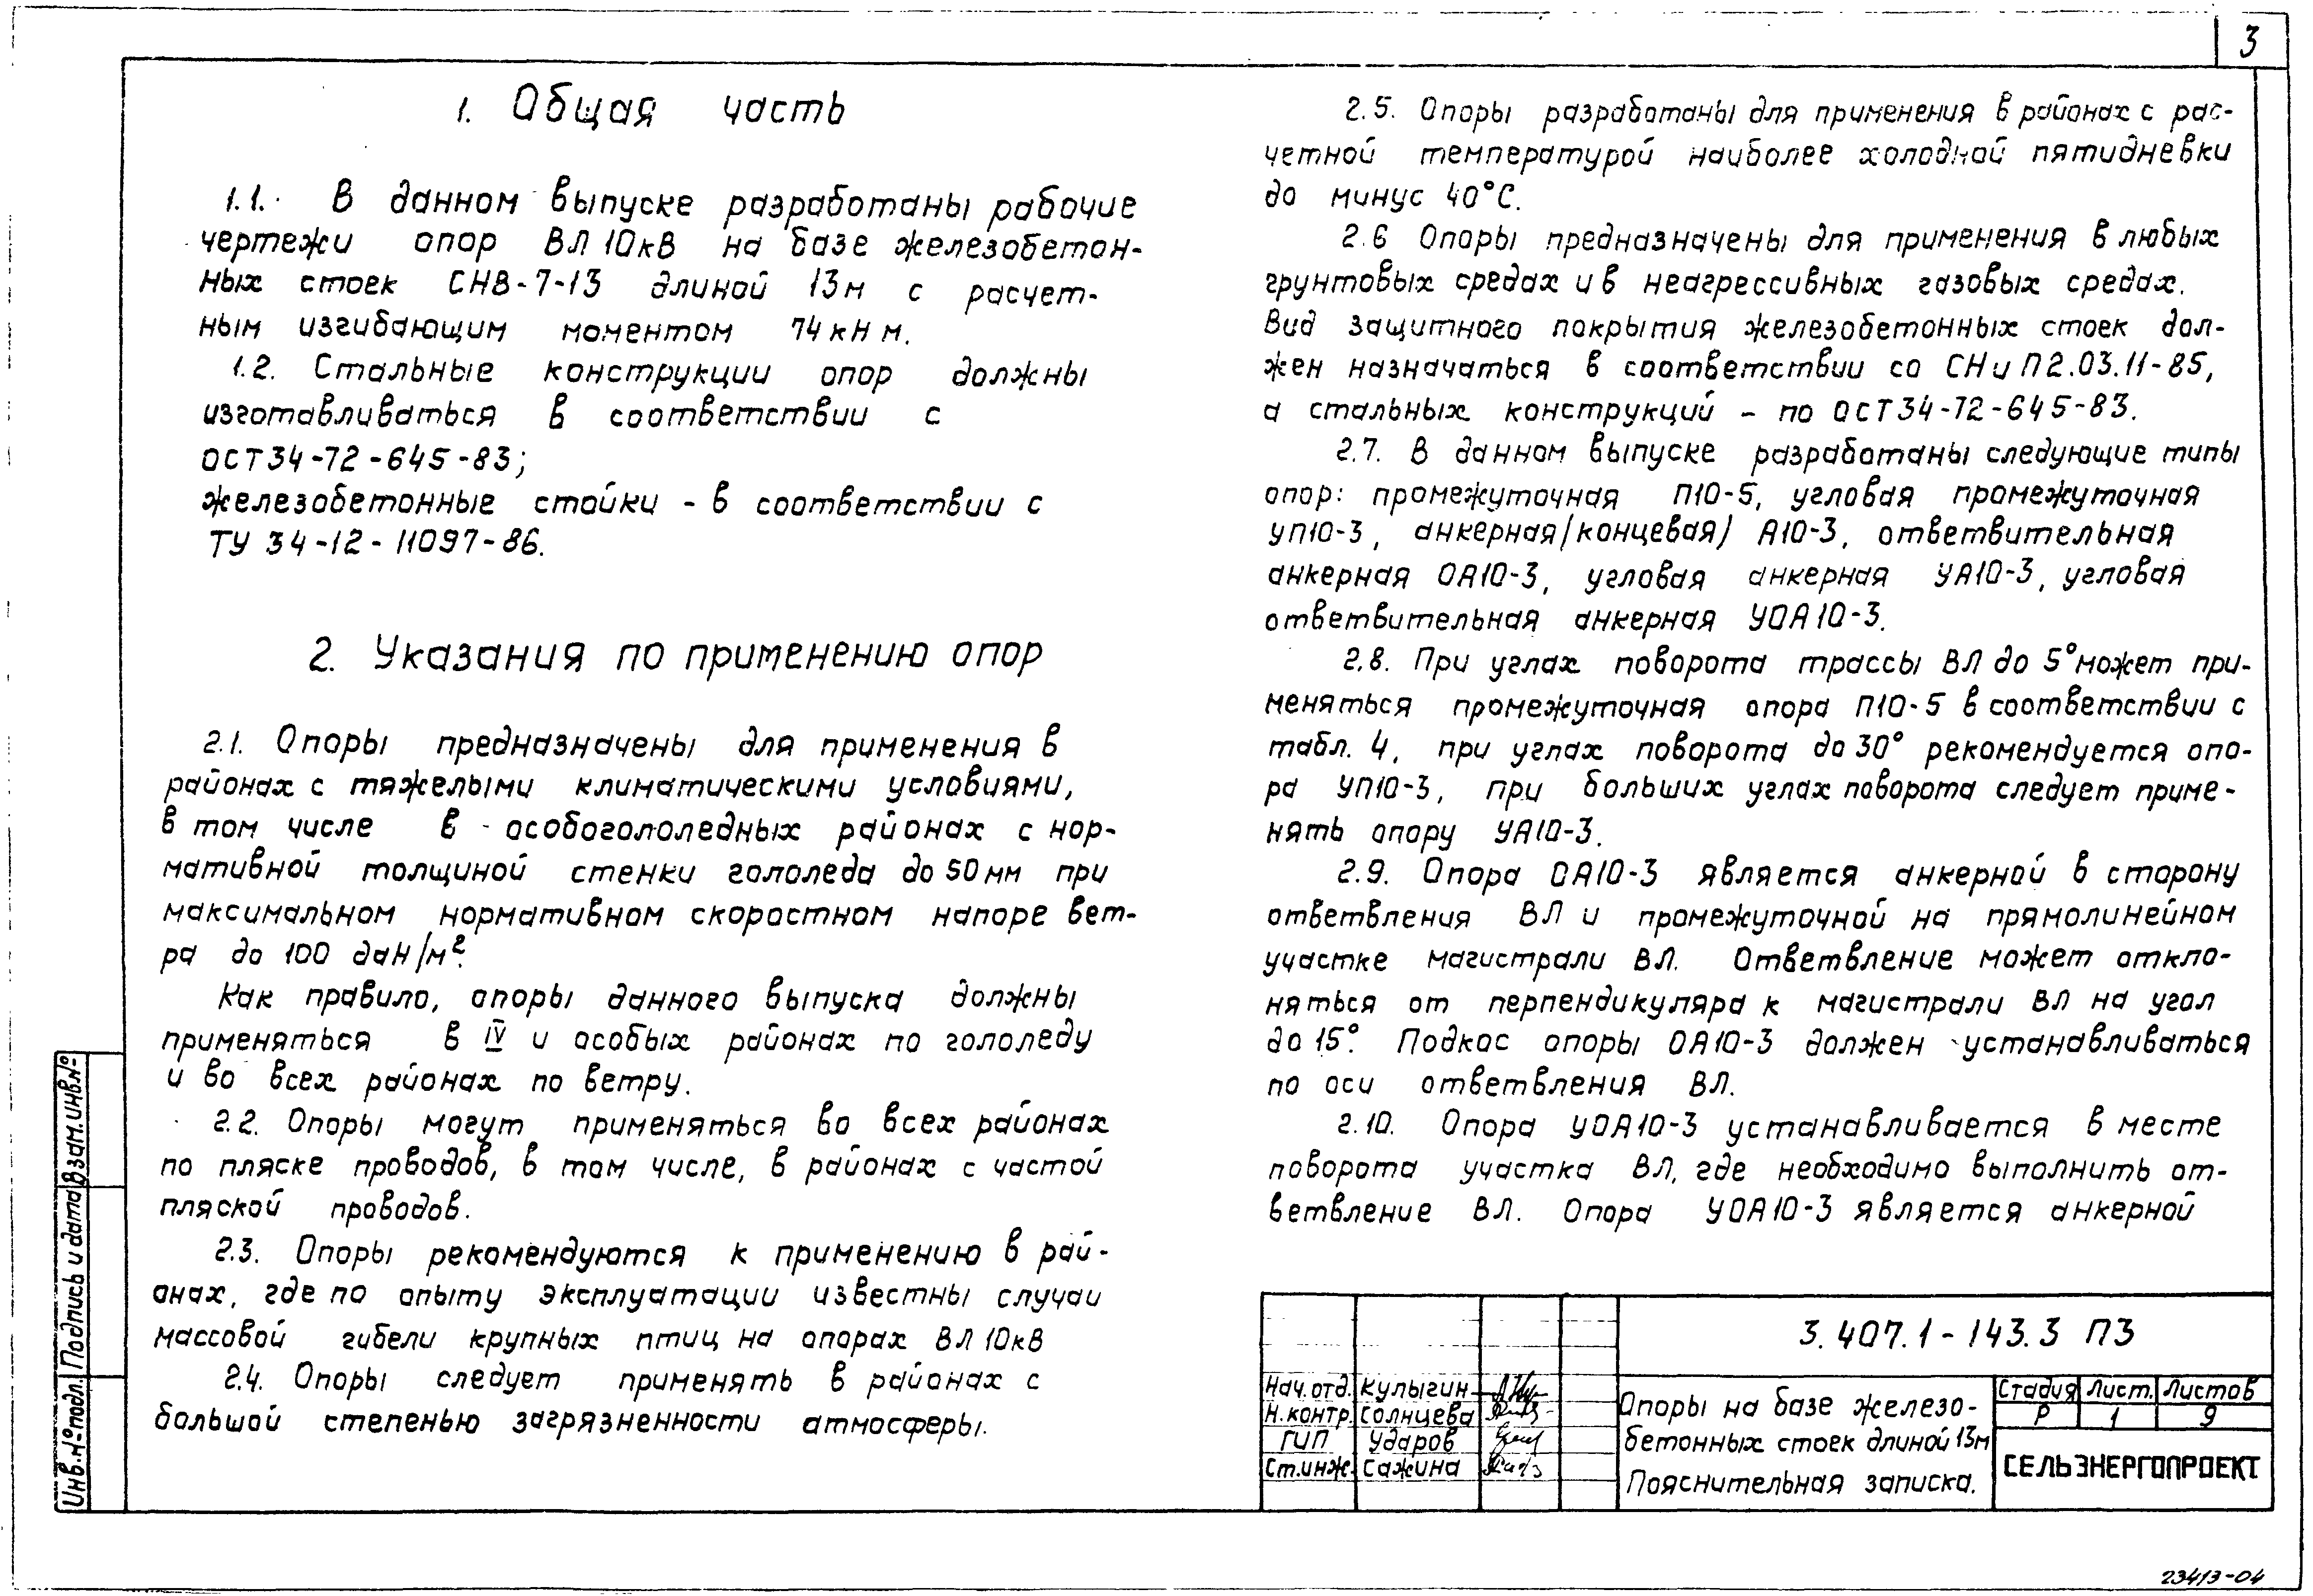 3
1. Общая часть
1.1. В данном выпуске разработаны рабочие
чертежи опор ВЛ 10кВ на базе железобетон-
ных стоек СНВ-7-13 длиной 13м с расчет-
ным изгибающим моментом 74кНм.
1.2. Стальные конструкции опор должны
изготавливаться в соответствии с
ОСТ34-72-645-83;
железобетонные стойки - в соответствии с
ТУ 34-12-11097-86.
2. Указания по применению опор
2.1. Опоры предназначены для применения в
районах с тяжелыми климатическими условиями,
в том числе в особогололедных районах с нор-
мативной толщиной стенки гололеда до 50мм при
максимальном нормативном скоростном напоре вет-
ра до 100 даН/м².
Как правило, опоры данного выпуска должны
применяться в IV и особых районах по гололеду
и во всех районах по ветру.
2.2. Опоры могут применяться во всех районах
по пляске проводов, в том числе, в районах с частой
пляской проводов.
2.3. Опоры рекомендуются к применению в рай-
онах, где по опыту эксплуатации известны случаи
массовой гибели крупных птиц на опорах ВЛ 10кВ
2.4. Опоры следует применять в районах с
большой степенью загрязненности атмосферы.
2.5. Опоры разработаны для применения в районах с рас-
четной температурой наиболее холодной пятидневки
до минус 40°С.
2.6 Опоры предназначены для применения в любых
грунтовых средах и в неагрессивных газовых средах.
Вид защитного покрытия железобетонных стоек дол-
жен назначаться в соответствии со СНиП2.03.11-85,
а стальных конструкций - по ОСТ34-72-645-83.
2.7. В данном выпуске разработаны следующие типы
опор: промежуточная П10-5, угловая промежуточная
УП10-3, анкерная/концевая/ А10-3, ответвительная
анкерная ОА10-3, угловая анкерная УА10-3, угловая
ответвительная анкерная УОА10-3.
2.8. При углах поворота трассы ВЛ до 5° может при-
меняться промежуточная опора П10-5 в соответствии с
табл. 4, при углах поворота до 30° рекомендуется опо-
ра УП10-3, при больших углах поворота следует приме-
нять опору УА10-3.
2.9. Опора ОА10-3 является анкерной в сторону
ответвления ВЛ и промежуточной на прямолинейном
участке магистрали ВЛ. Ответвление может откло-
няться от перпендикуляра к магистрали ВЛ на угол
до 15°. Подкос опоры ОА10-3 должен устанавливаться
по оси ответвления ВЛ.
2.10. Опора УОА10-3 устанавливается в месте
поворота участка ВЛ, где необходимо выполнить от-
ветвление ВЛ. Опора УОА10-3 является анкерной
3.407.1-143.3 ПЗ
Нач.отд. Кулыгин
Н.контр. Солнцева
ГИП Ударов
Ст.инж. Сажина
Опоры на базе железо-
бетонных стоек длиной 13м
Пояснительная записка.
Стадия Лист. Листов
Р 1 9
СЕЛЬЭНЕРГОПРОЕКТ
Инв.№подл. Подпись и дата Взам.инв.№
23413-04